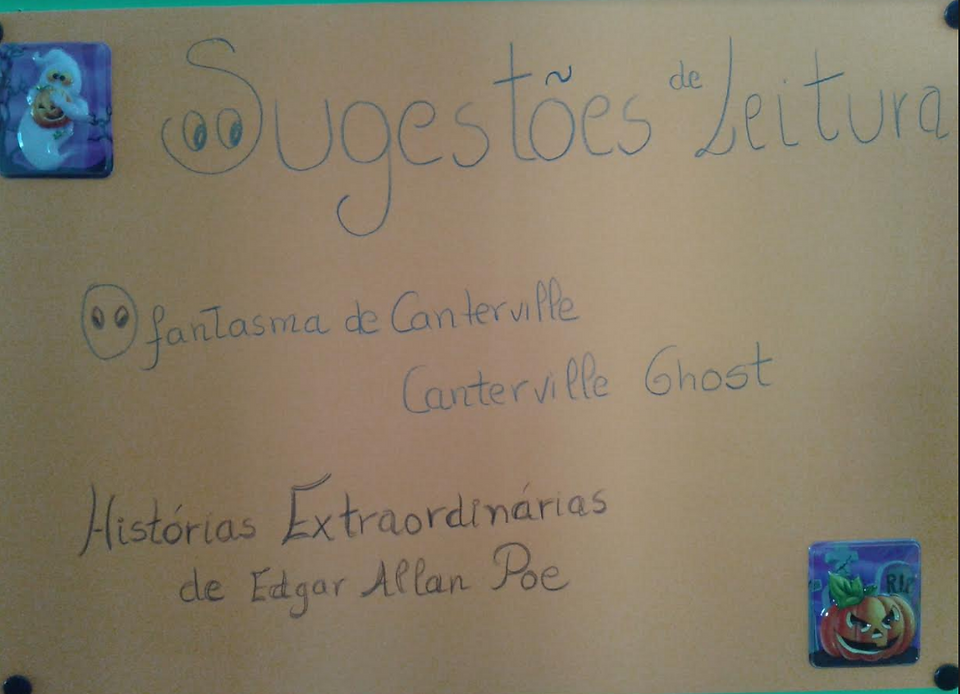 Sugestões de Leitura
O fantasma de Canterville
Canterville Ghost
Histórias Extraordinárias
de Edgar Allan Poe
RIP